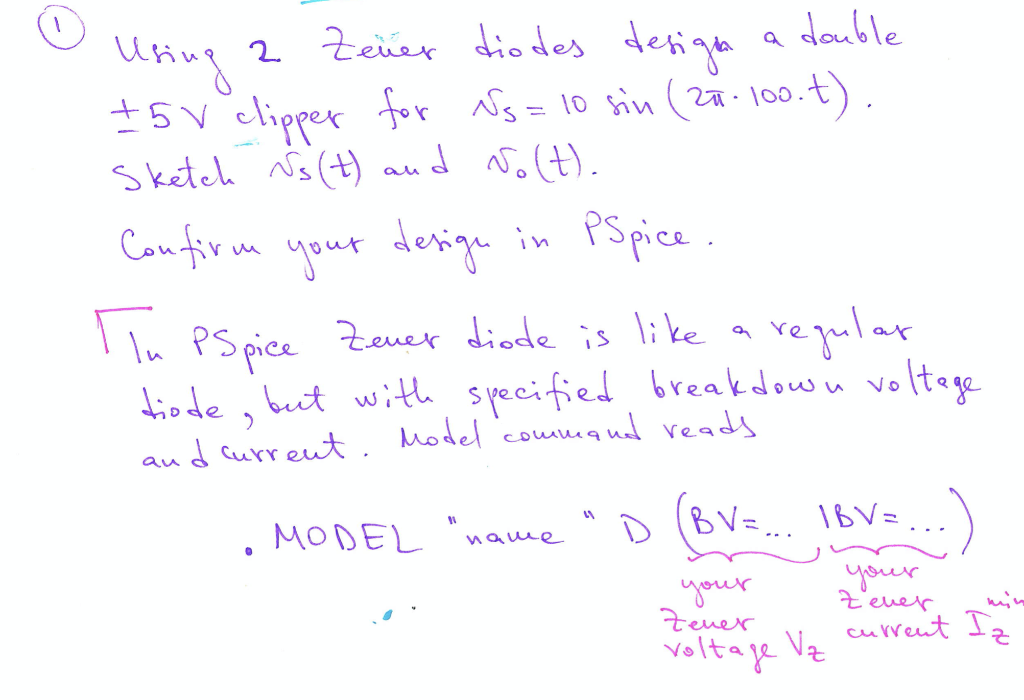 1
Using 2 Zener diodes design a double
±5V clipper for Vs = 10 sin (2π·100·t).
Sketch Vs(t) and Vo(t).
Confirm your design in PSpice.
In PSpice Zener diode is like a regular
diode, but with specified breakdown voltage
and current. Model command reads
. MODEL "name" D (BV=... IBV=...)
your
Zener
voltage Vz
your
Zener
current Iz min